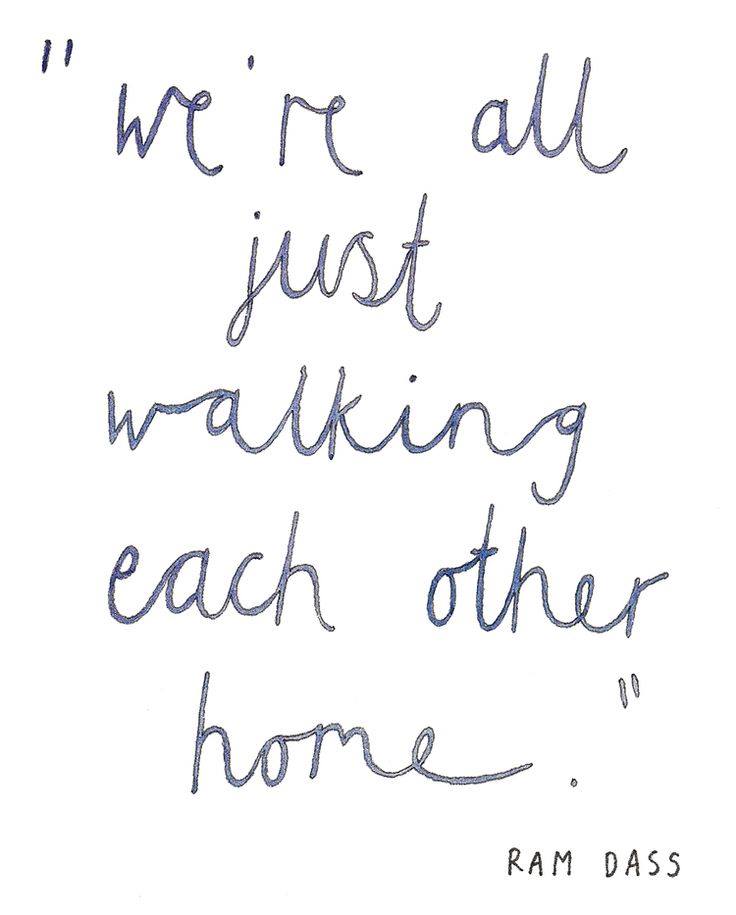 "we're all
just
walking
each other
home."
RAM DASS